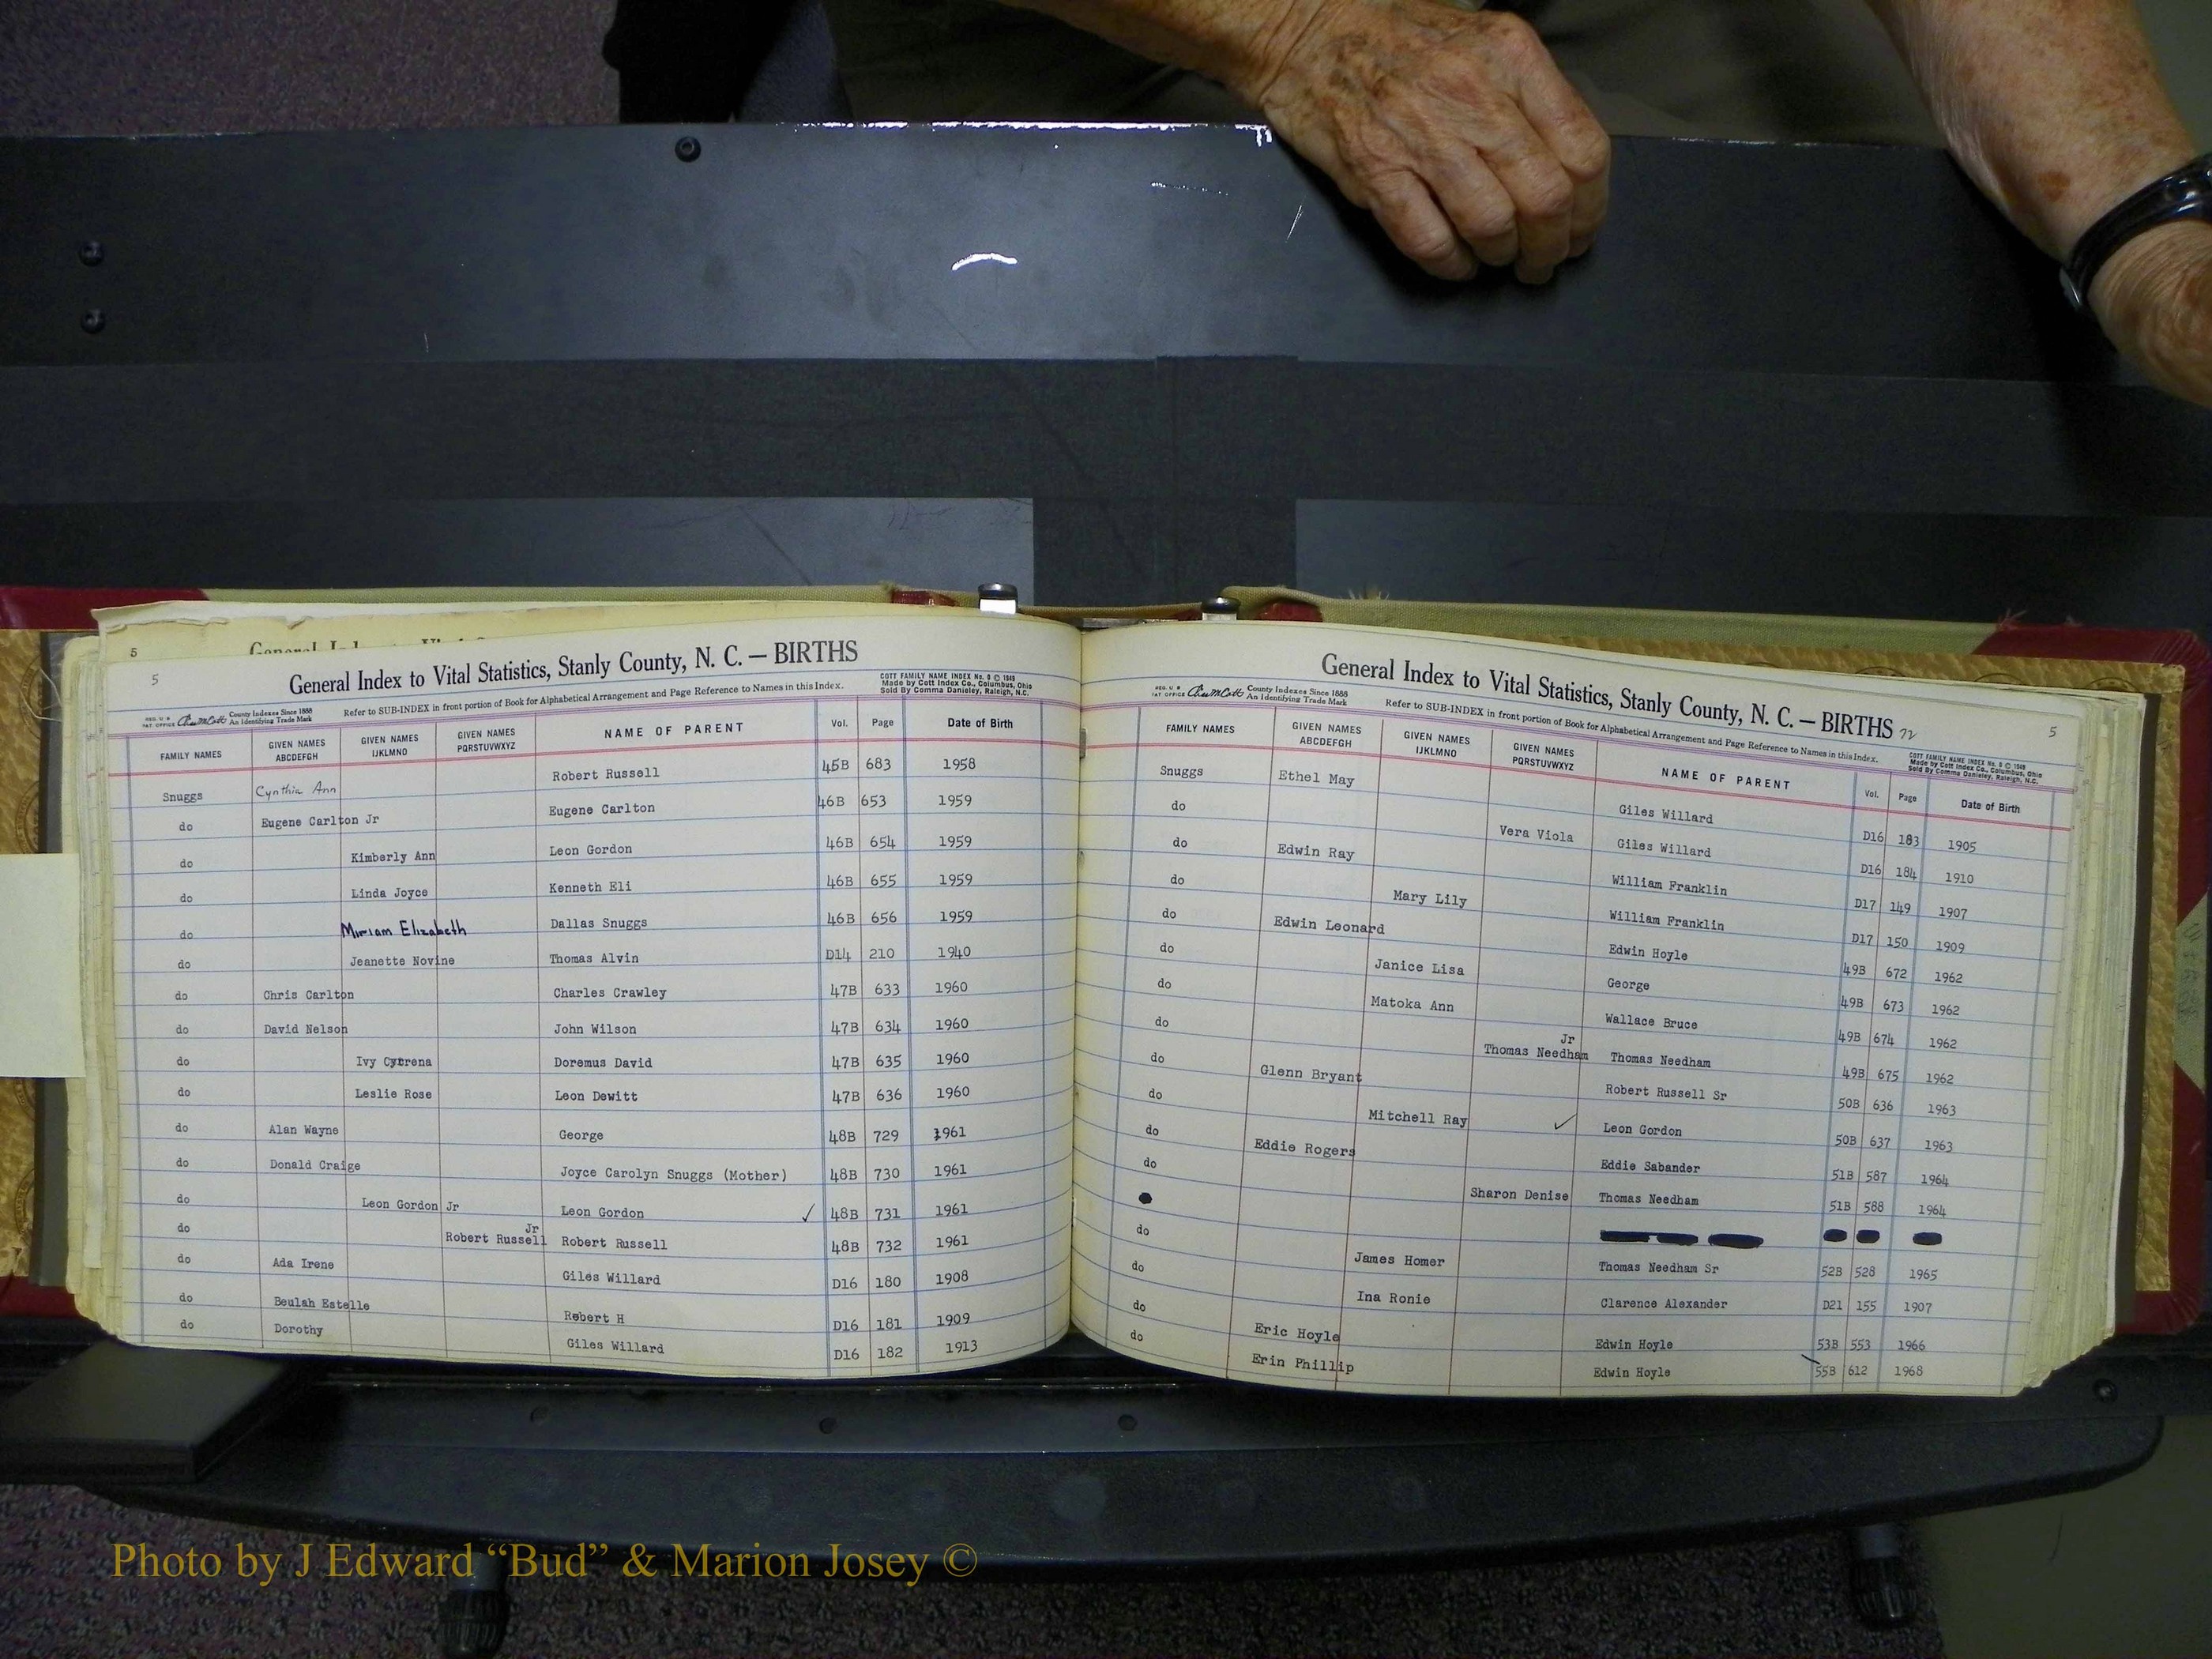 5
5
General Index to Vital Statistics, Stanly County, N. C. — BIRTHS
County Indexes Since 1888
An Identifying Trade Mark
Refer to SUB-INDEX in front portion of Book for Alphabetical Arrangement and Page Reference to Names in this Index.
COTT FAMILY NAME INDEX No. 9 © 1949
Made by Cott Index Co., Columbus, Ohio
Sold By Comma Danieley, Raleigh, N.C.
FAMILY NAMES GIVEN NAMES ABCDEFGH GIVEN NAMES IJKLMNO GIVEN NAMES PQRSTUVWXYZ NAME OF PARENT Vol. Page Date of Birth
Snuggs Cynthia Ann Robert Russell 45B 683 1958
do Eugene Carlton Jr Eugene Carlton 46B 653 1959
do Kimberly Ann Leon Gordon 46B 654 1959
do Linda Joyce Kenneth Eli 46B 655 1959
do Miriam Elizabeth Dallas Snuggs 46B 656 1959
do Jeanette Novine Thomas Alvin D14 210 1940
do Chris Carlton Charles Crawley 47B 633 1960
do David Nelson John Wilson 47B 634 1960
do Ivy Doremus David 47B 635 1960
do Leslie Rose Leon Dewitt 47B 636 1960
do Alan Wayne George 48B 729 1961
do Donald Craige Joyce Carolyn Snuggs (Mother) 48B 730 1961
do Leon Gordon Jr Leon Gordon ✓ 48B 731 1961
do Robert Russell Jr Robert Russell 48B 732 1961
do Ada Irene Giles Willard D16 180 1908
do Beulah Estelle Robert H D16 181 1909
do Dorothy Giles Willard D16 182 1913
General Index to Vital Statistics, Stanly County, N. C. — BIRTHS 72
5
County Indexes Since 1888
An Identifying Trade Mark
Refer to SUB-INDEX in front portion of Book for Alphabetical Arrangement and Page Reference to Names in this Index.
COTT FAMILY NAME INDEX No. 9 © 1949
Made by Cott Index Co., Columbus, Ohio
Sold By Comma Danieley, Raleigh, N.C.
FAMILY NAMES GIVEN NAMES ABCDEFGH GIVEN NAMES IJKLMNO GIVEN NAMES PQRSTUVWXYZ NAME OF PARENT Vol. Page Date of Birth
Snuggs Ethel May Giles Willard D16 183 1905
do Vera Viola Giles Willard D16 184 1910
do Edwin Ray William Franklin D17 149 1907
do Mary Lily William Franklin D17 150 1909
do Edwin Leonard Edwin Hoyle 49B 672 1962
do Janice Lisa George 49B 673 1962
do Matoka Ann Wallace Bruce 49B 674 1962
do Thomas Needham Jr Thomas Needham 49B 675 1962
do Glenn Bryant Robert Russell Sr 50B 636 1963
do Mitchell Ray ✓ Leon Gordon 50B 637 1963
do Eddie Rogers Eddie Sabander 51B 587 1964
do Sharon Denise Thomas Needham 51B 588 1964
do James Homer Thomas Needham Sr 52B 528 1965
do Ina Ronie Clarence Alexander D21 155 1907
do Eric Hoyle Edwin Hoyle 53B 553 1966
do Erin Phillip Edwin Hoyle 55B 612 1968
Photo by J Edward “Bud” & Marion Josey ©